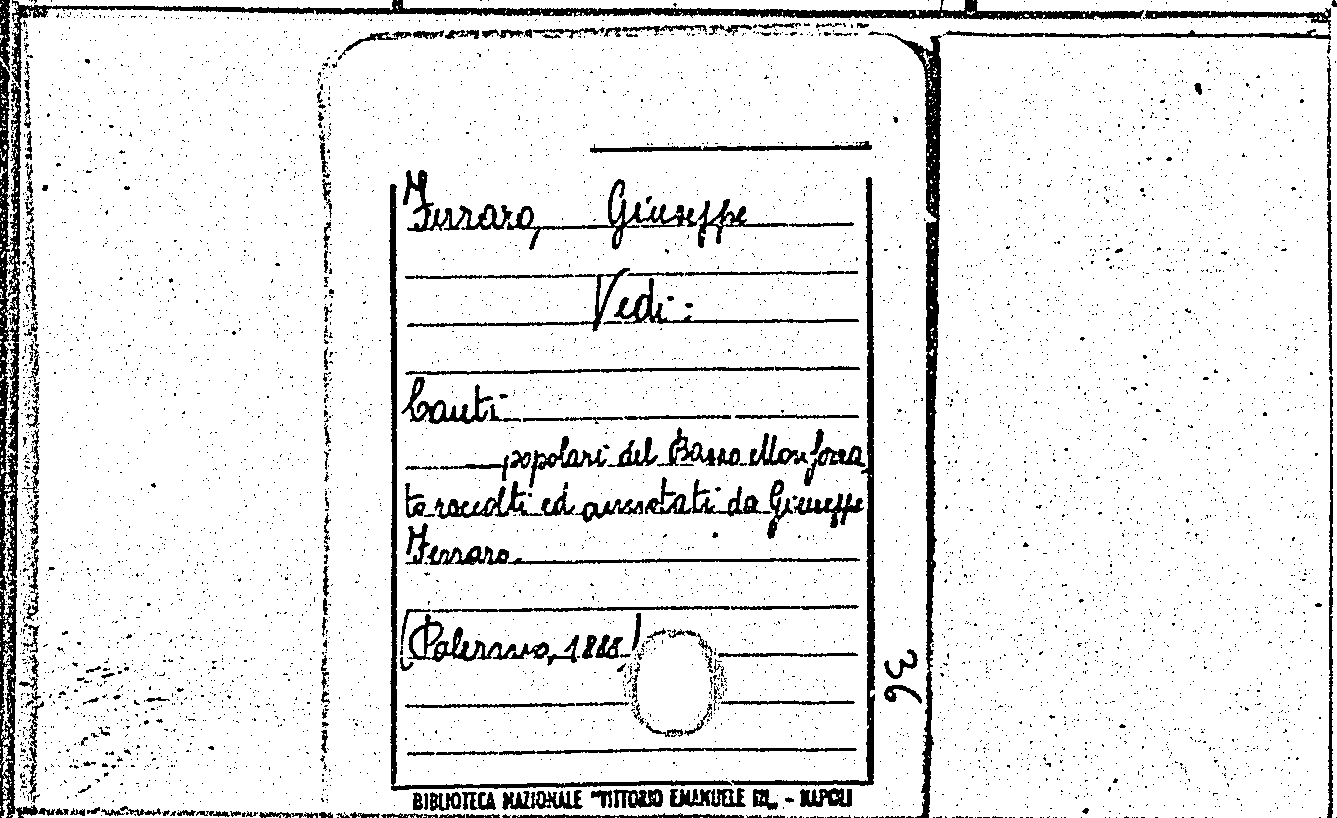 Ferraro, Giuseppe
Vedi:
Canti
popolari del Basso Monferra
to raccolti ed annotati da Giuseppe
Ferraro.
(Palermo, 1888)
36
BIBLIOTECA NAZIONALE "VITTORIO EMANUELE III„ - NAPOLI